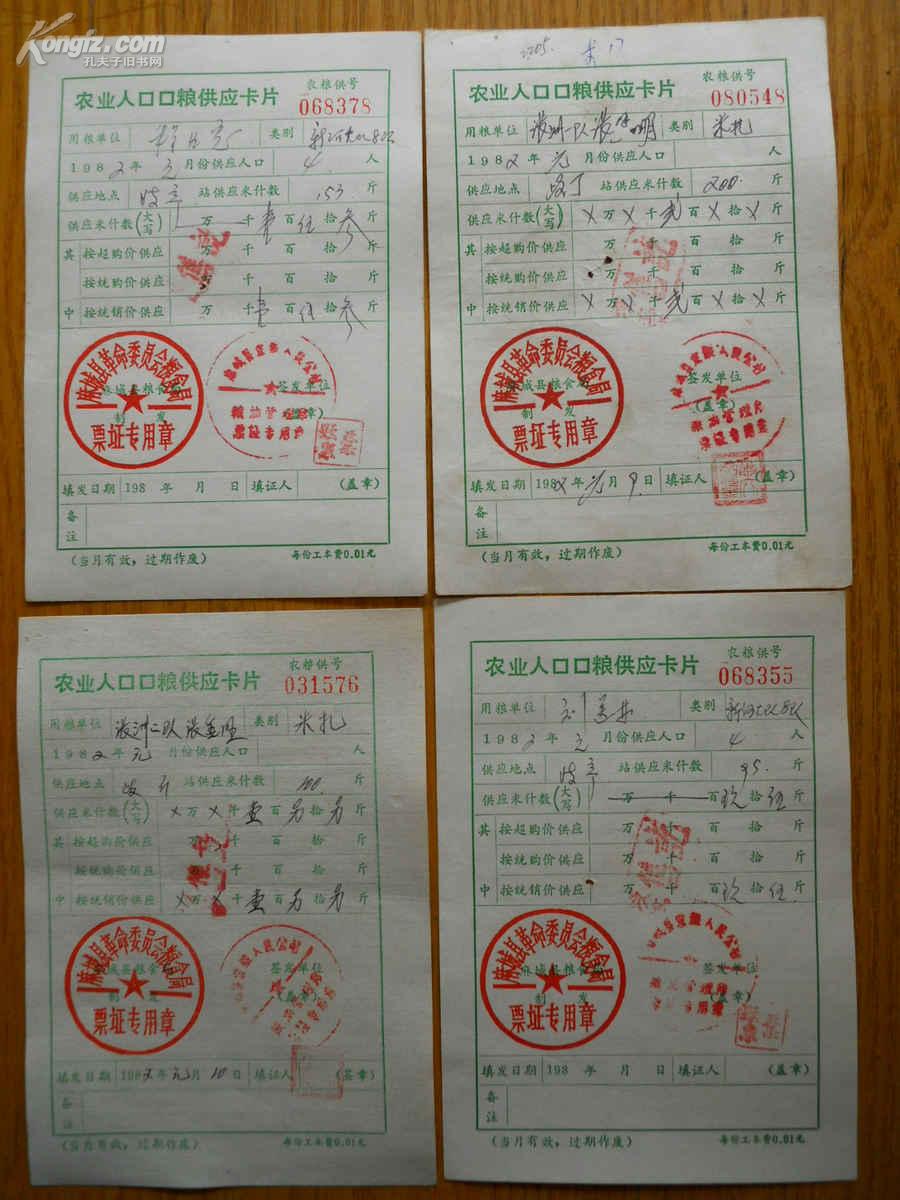 Kongfz.com
孔夫子旧书网
农业人口口粮供应卡片
农粮供号
068378
用粮单位 类别
1982年元月份供应人口 4 人
供应地点 站供应米什数 153 斤
供应米什数(大写) 万 千 壹 百 伍 拾 叁 斤
其 按起购价供应 万 千 百 拾 斤
按统购价供应 万 千 百 拾 斤
中 按统销价供应 万 千 壹 百 伍 拾 叁 斤
麻城县革命委员会粮食局
票证专用章
麻城县粮食局
制发
签发单位
(盖章)
填发日期 198 年 月 日 填证人 (盖章)
备注
(当月有效，过期作废) 每份工本费0.01元
农业人口口粮供应卡片
农粮供号
080548
用粮单位 类别
1982年元月份供应人口 人
供应地点 站供应米什数 200 斤
供应米什数(大写) X 万 X 千 贰 百 X 拾 X 斤
其 按起购价供应 万 千 百 拾 斤
按统购价供应 万 千 百 拾 斤
中 按统销价供应 X 万 X 千 贰 百 X 拾 X 斤
麻城县革命委员会粮食局
票证专用章
麻城县粮食局
制发
签发单位
(盖章)
填发日期 1982年元月9日 填证人 (盖章)
备注
(当月有效，过期作废) 每份工本费0.01元
农业人口口粮供应卡片
农粮供号
031576
用粮单位 类别
1982年元月份供应人口 人
供应地点 站供应米什数 100 斤
供应米什数(大写) X 万 X 千 壹 百 另 拾 另 斤
其 按起购价供应 万 千 百 拾 斤
按统购价供应 万 千 百 拾 斤
中 按统销价供应 X 万 X 千 壹 百 另 拾 另 斤
麻城县革命委员会粮食局
票证专用章
麻城县粮食局
制发
签发单位
(盖章)
填发日期 1982年元月10日 填证人 (盖章)
备注
(当月有效，过期作废) 每份工本费0.01元
农业人口口粮供应卡片
农粮供号
068355
用粮单位 类别
1982年元月份供应人口 4 人
供应地点 站供应米什数 95 斤
供应米什数(大写) 万 千 百 玖 拾 伍 斤
其 按起购价供应 万 千 百 拾 斤
按统购价供应 万 千 百 拾 斤
中 按统销价供应 万 千 百 玖 拾 伍 斤
麻城县革命委员会粮食局
票证专用章
麻城县粮食局
制发
签发单位
(盖章)
填发日期 198 年 月 日 填证人 (盖章)
备注
(当月有效，过期作废) 每份工本费0.01元